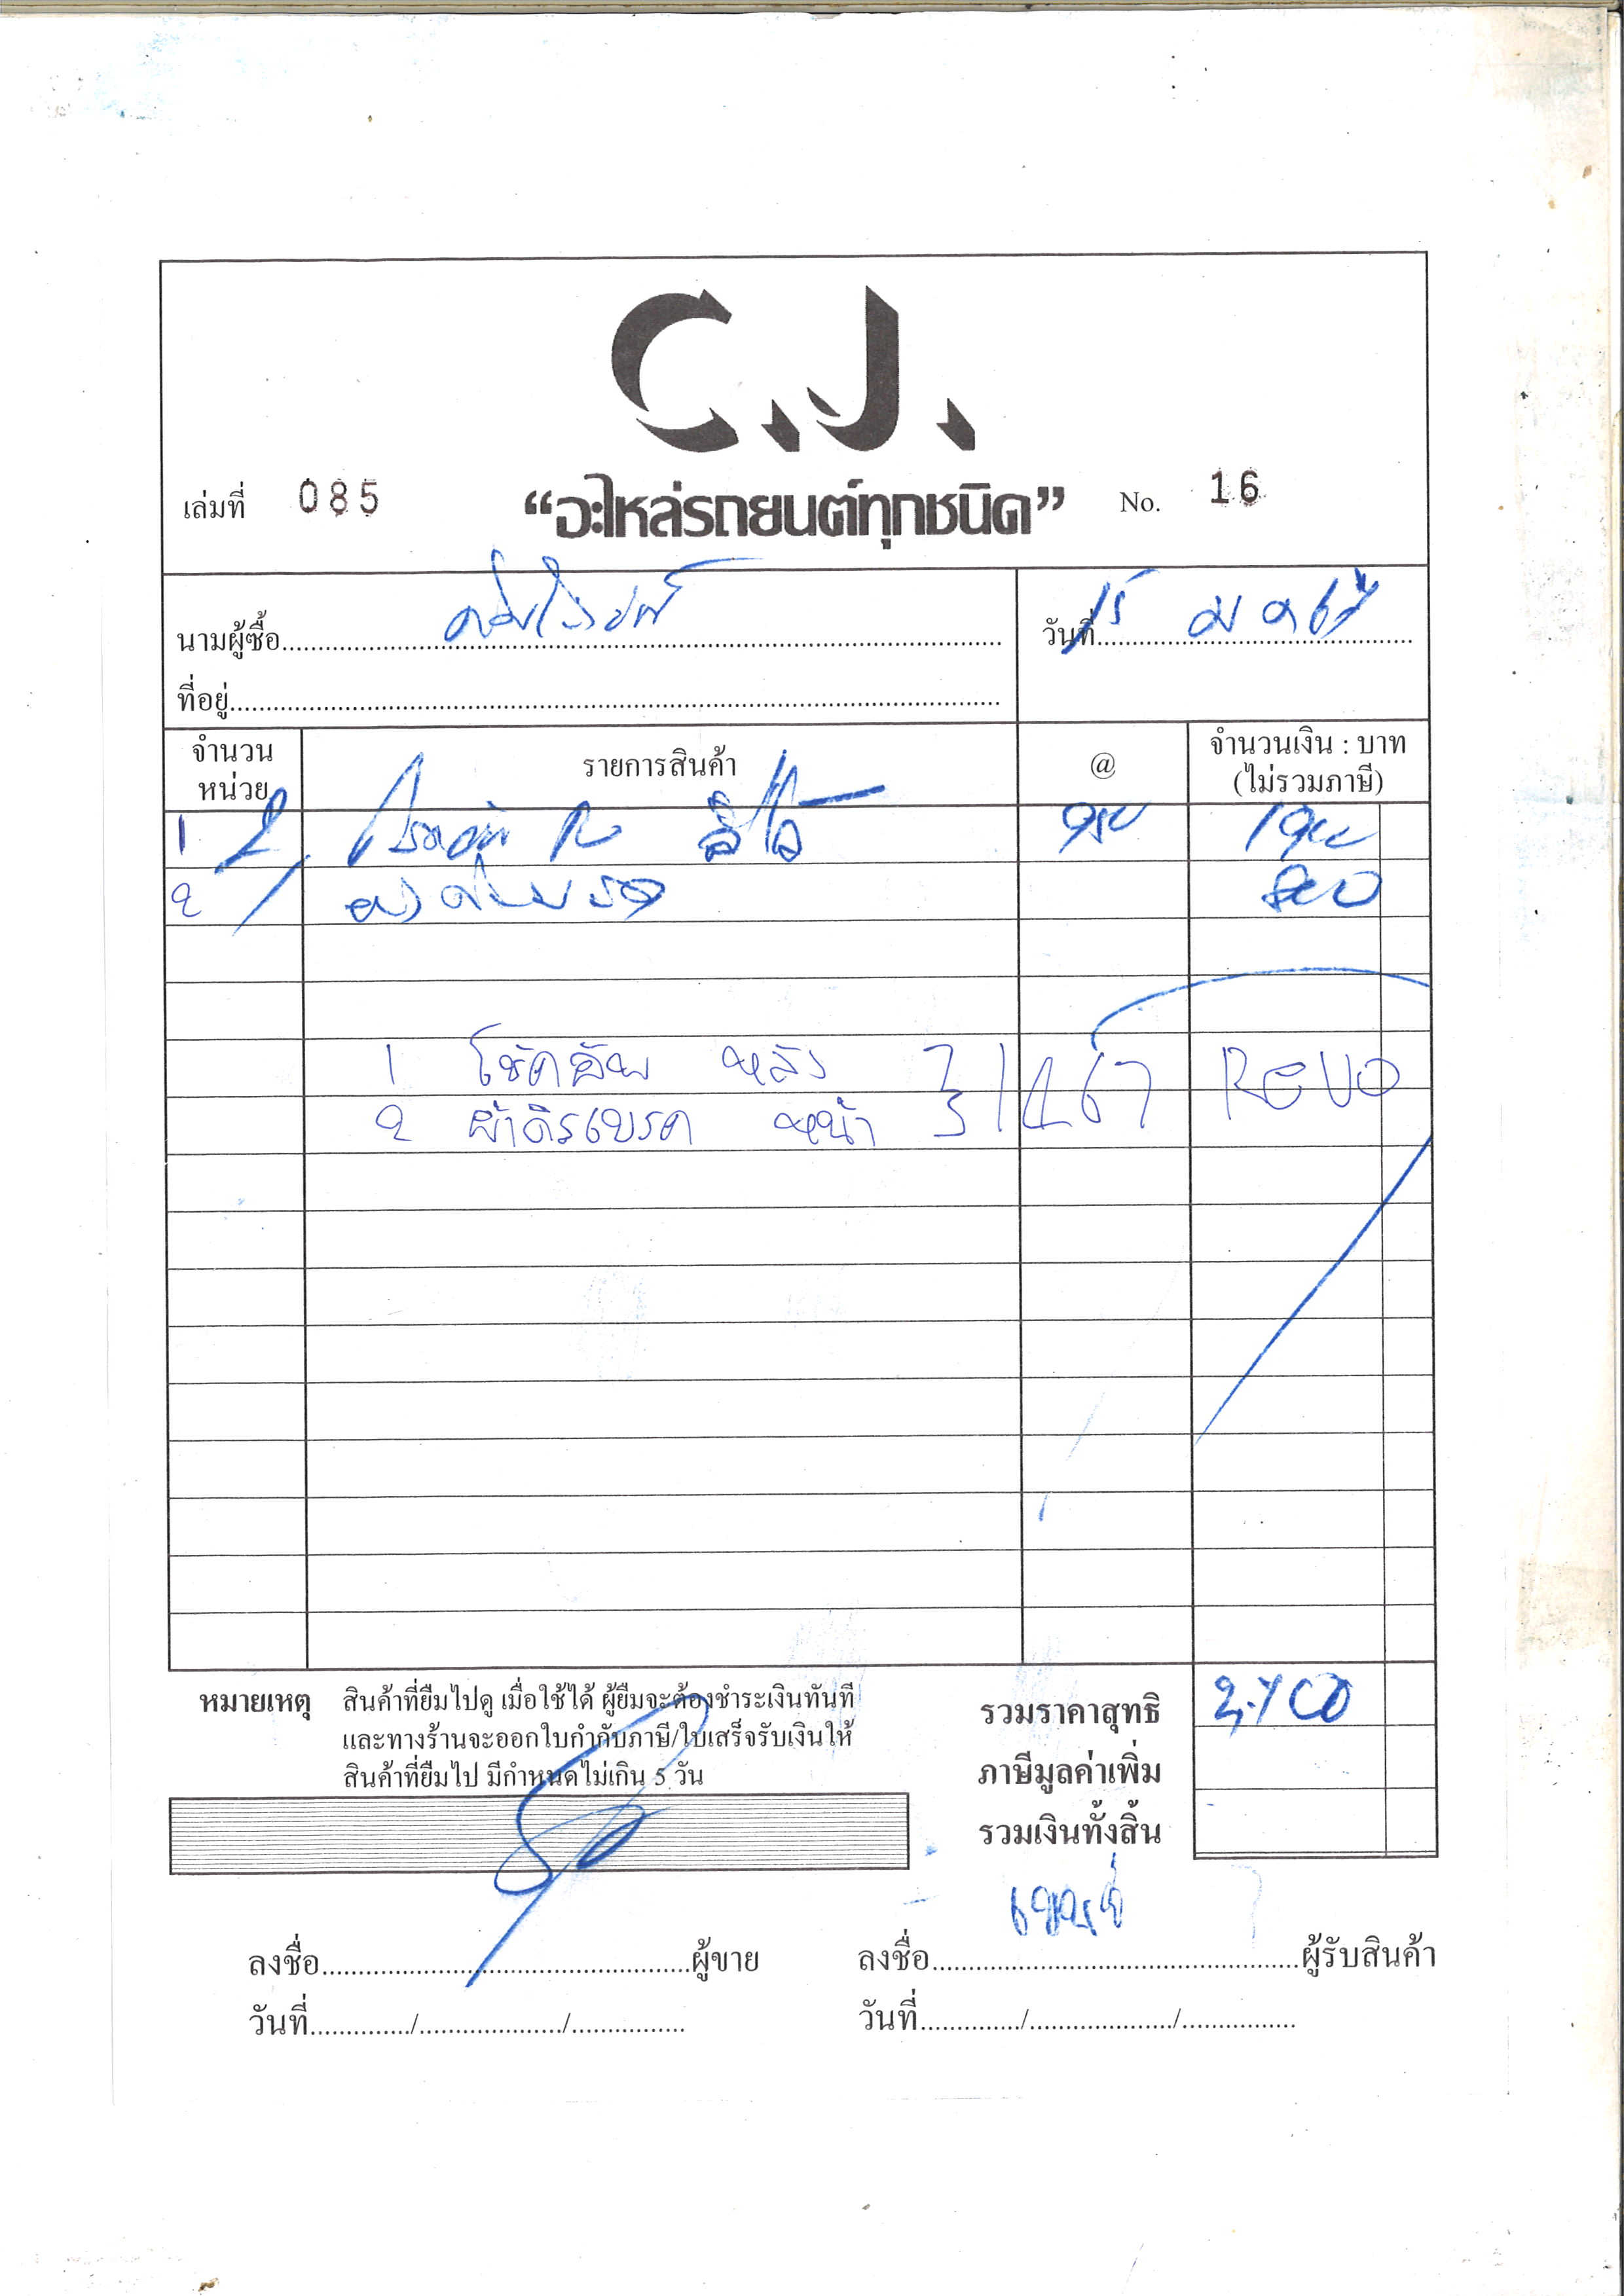 C.J.
เล่มที่ 085 “อะไหล่รถยนต์ทุกชนิด” No. 16
นามผู้ซื้อ
วันที่ 15 ม ค 67
ที่อยู่
จำนวน หน่วย รายการสินค้า @ จำนวนเงิน : บาท (ไม่รวมภาษี)
1 2 950 1900
2 / 800
1 โช้คอัพ หลัง
2 ผ้าดิรเบรค หน้า
1467 REVO
หมายเหตุ สินค้าที่ยืมไปดู เมื่อใช้ได้ ผู้ยืมจะต้องชำระเงินทันที
และทางร้านจะออกใบกำกับภาษี/ใบเสร็จรับเงินให้
สินค้าที่ยืมไป มีกำหนดไม่เกิน 5 วัน
รวมราคาสุทธิ 2,700
ภาษีมูลค่าเพิ่ม
รวมเงินทั้งสิ้น
ลงชื่อ ผู้ขาย
ลงชื่อ ผู้รับสินค้า
วันที่ / /
วันที่ / /